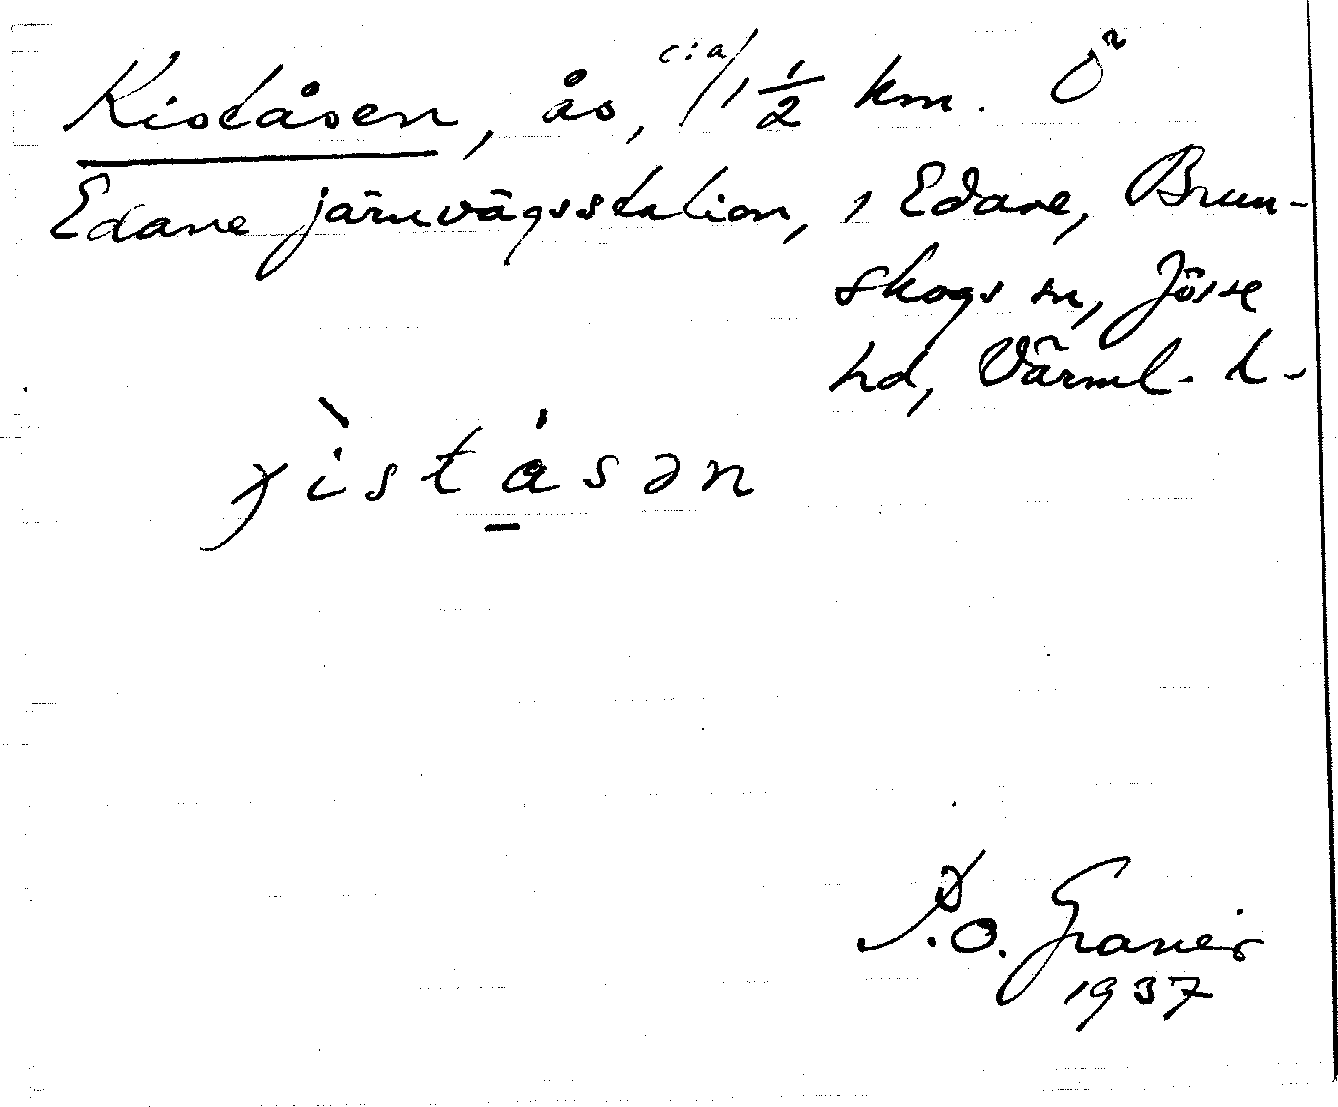 Kiståsen, ås, c:a 1 1/2 km. Ö
Edane järnvägsstation, i Edane, Brun-
skogs sn, Jösse
hd, Värml. l.
χ̀iståsən
P.O. Granér
1937